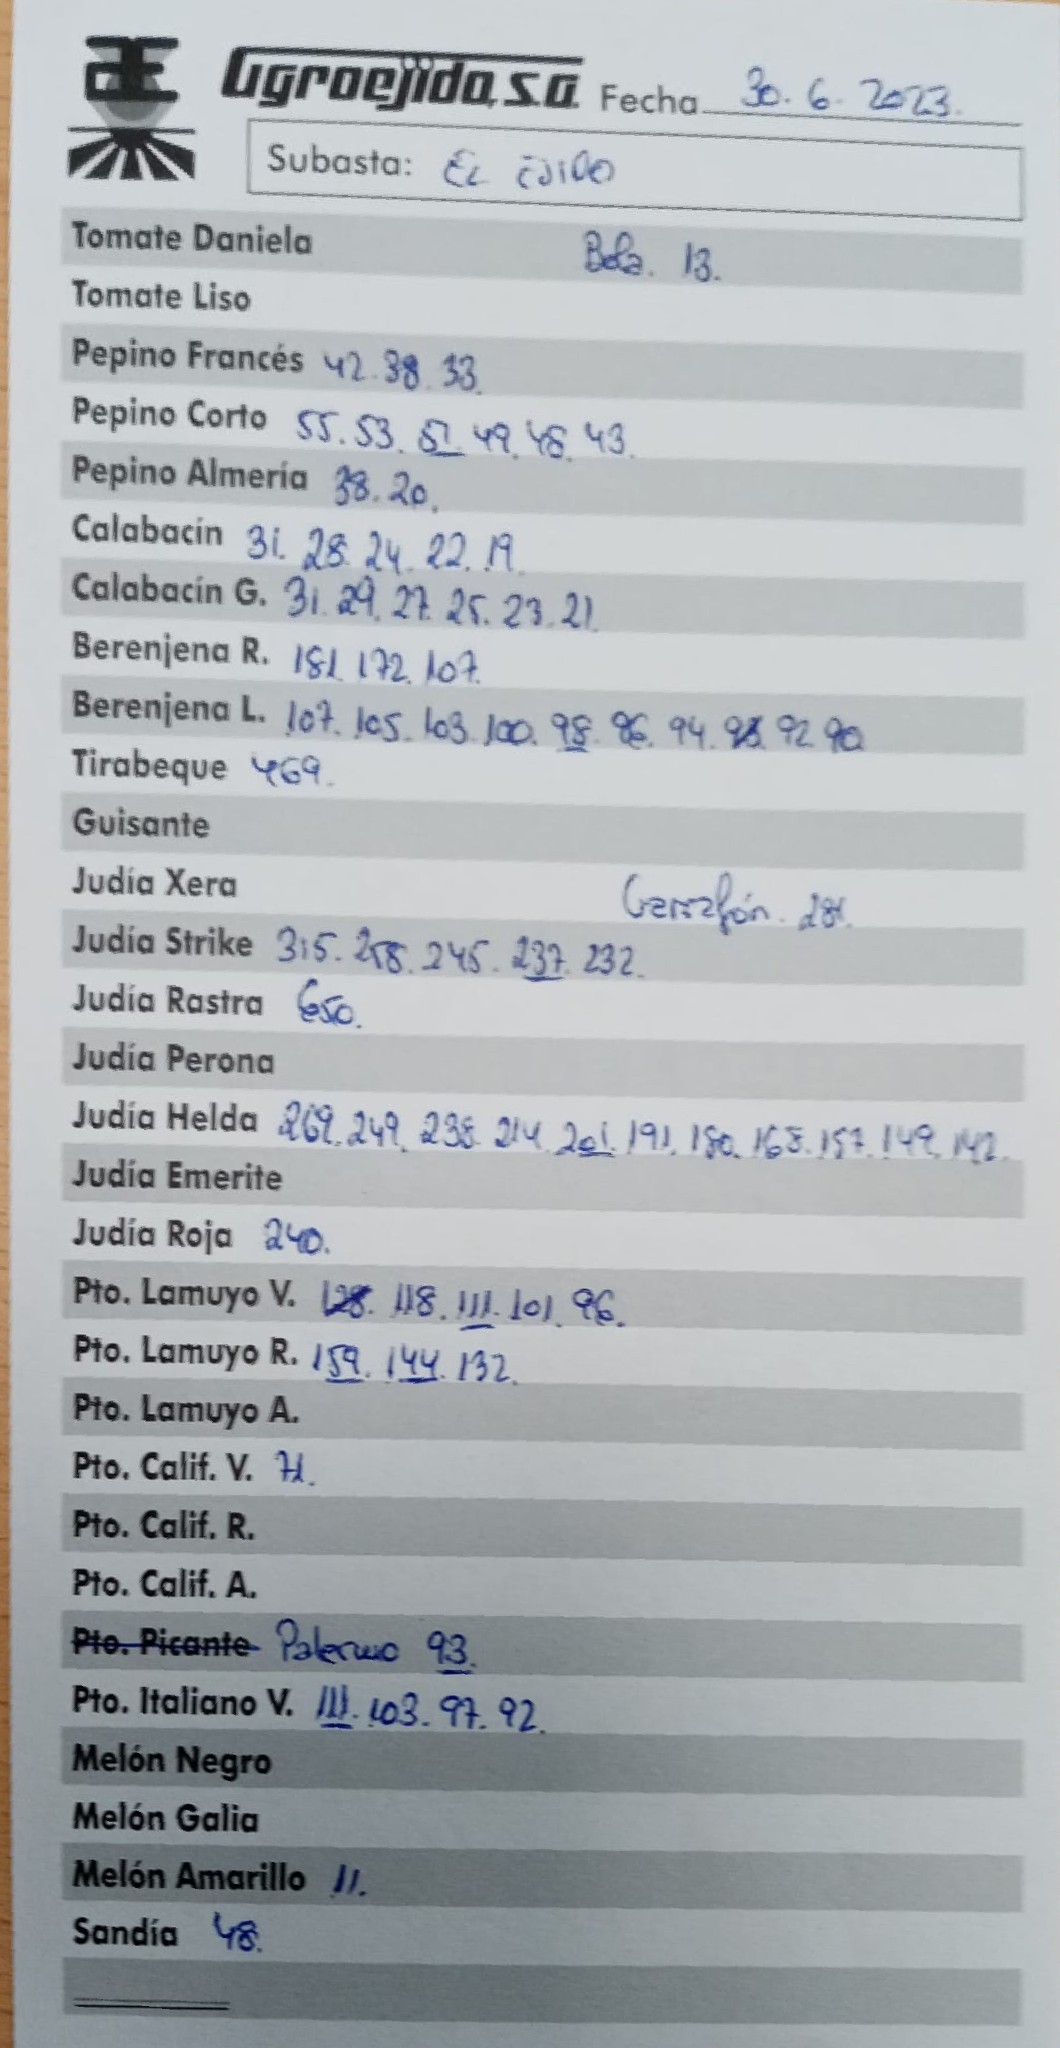 Agroejido, S.A. Fecha 30. 6. 2023.
Subasta: EL EJIDO
Tomate Daniela Bola. 13.
Tomate Liso
Pepino Francés 42. 38. 33.
Pepino Corto 55. 53. 51. 49. 48. 43.
Pepino Almería 38. 20.
Calabacín 31. 28. 24. 22. 19.
Calabacín G. 31. 29. 27. 25. 23. 21.
Berenjena R. 181. 172. 107.
Berenjena L. 107. 105. 103. 100. 98. 96. 94. 93. 92. 90.
Tirabeque 469.
Guisante
Judía Xera Garrafón. 281.
Judía Strike 315. 258. 245. 237. 232.
Judía Rastra 650.
Judía Perona
Judía Helda 269. 249. 238. 214. 201. 191. 180. 168. 157. 149. 142.
Judía Emerite
Judía Roja 240.
Pto. Lamuyo V. 128. 118. 111. 101. 96.
Pto. Lamuyo R. 159. 144. 132.
Pto. Lamuyo A.
Pto. Calif. V. 71.
Pto. Calif. R.
Pto. Calif. A.
Pto. Picante Palermo 93.
Pto. Italiano V. 111. 103. 97. 92.
Melón Negro
Melón Galia
Melón Amarillo 11.
Sandía 48.